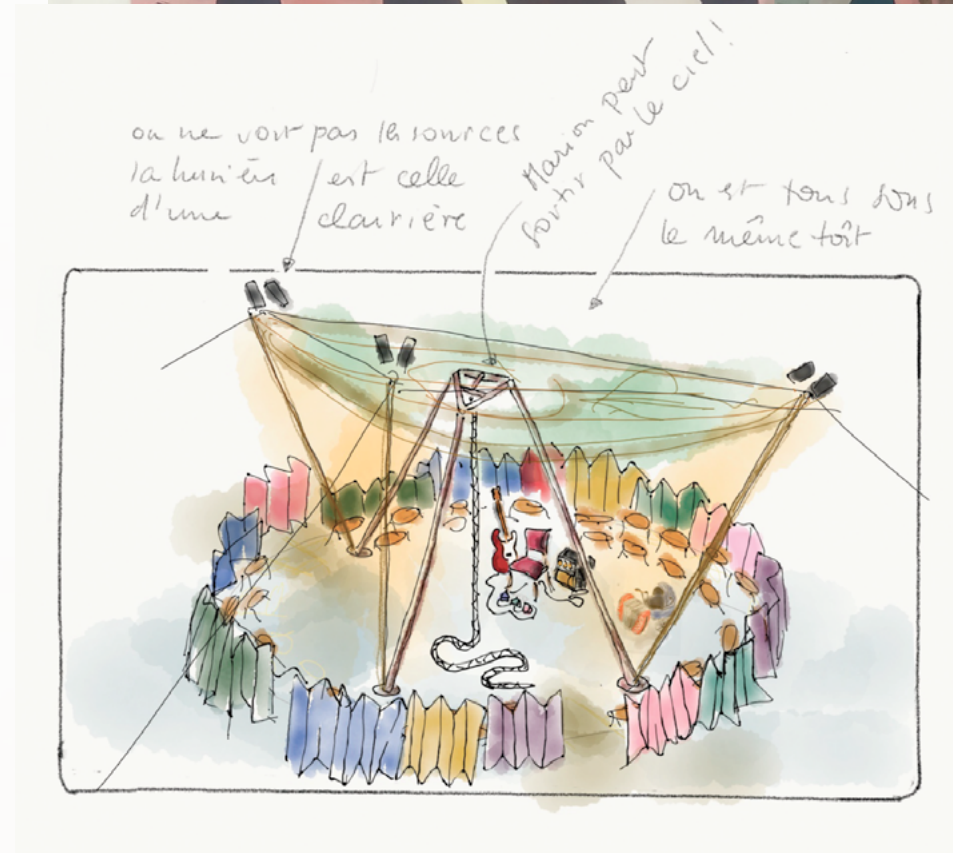 on ne voit pas les sources
la lumière est celle
d'une clairière
Marion peut
sortir par le ciel!
on est tous sous
le même toît